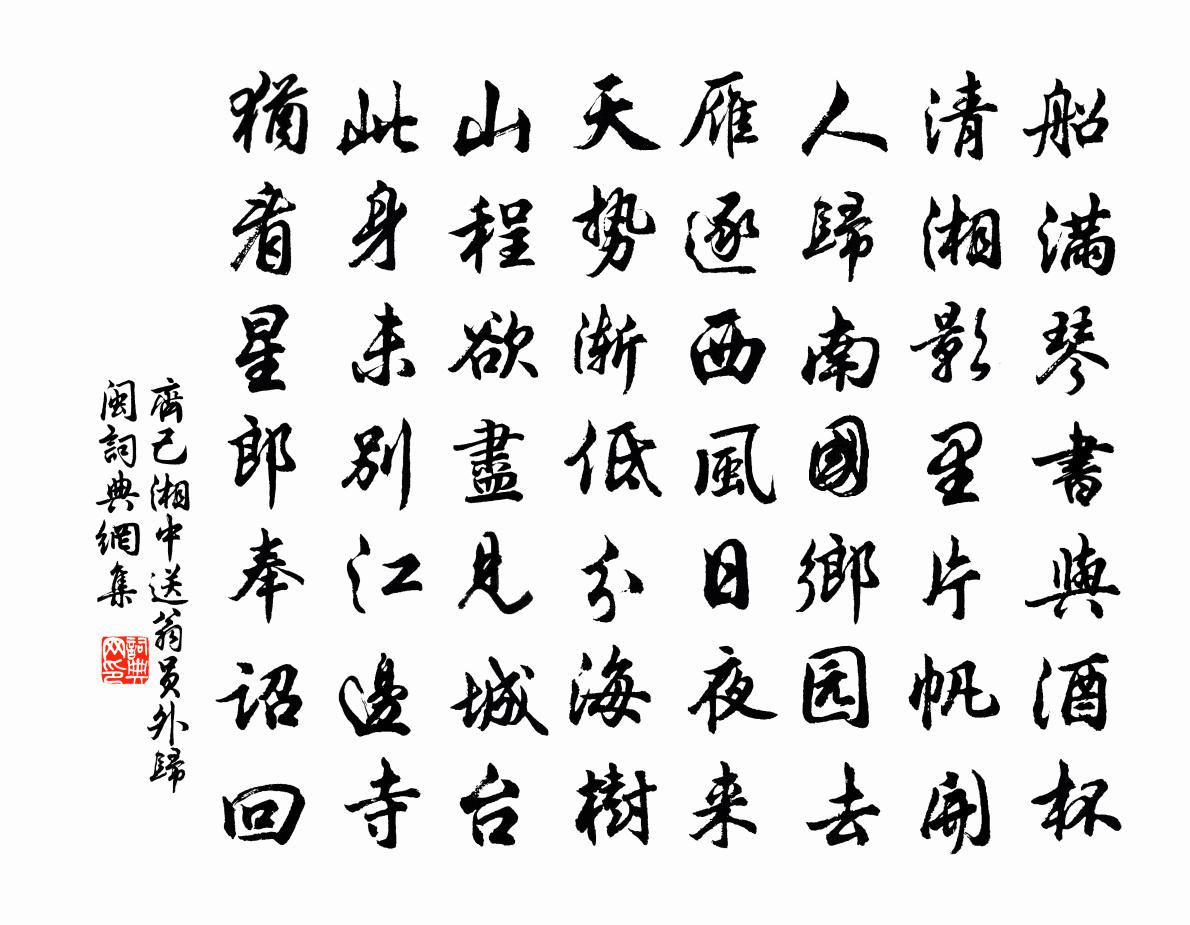 船滿琴書與酒杯
清湘影里片帆開
人歸南國鄉园去
雁逐西風日夜来
天势漸低分海樹
山程欲盡見城台
此身未別江邊寺
猶看星郎奉诏回
齊己湘中送翁員外歸
閩詞典網集
詞典网印